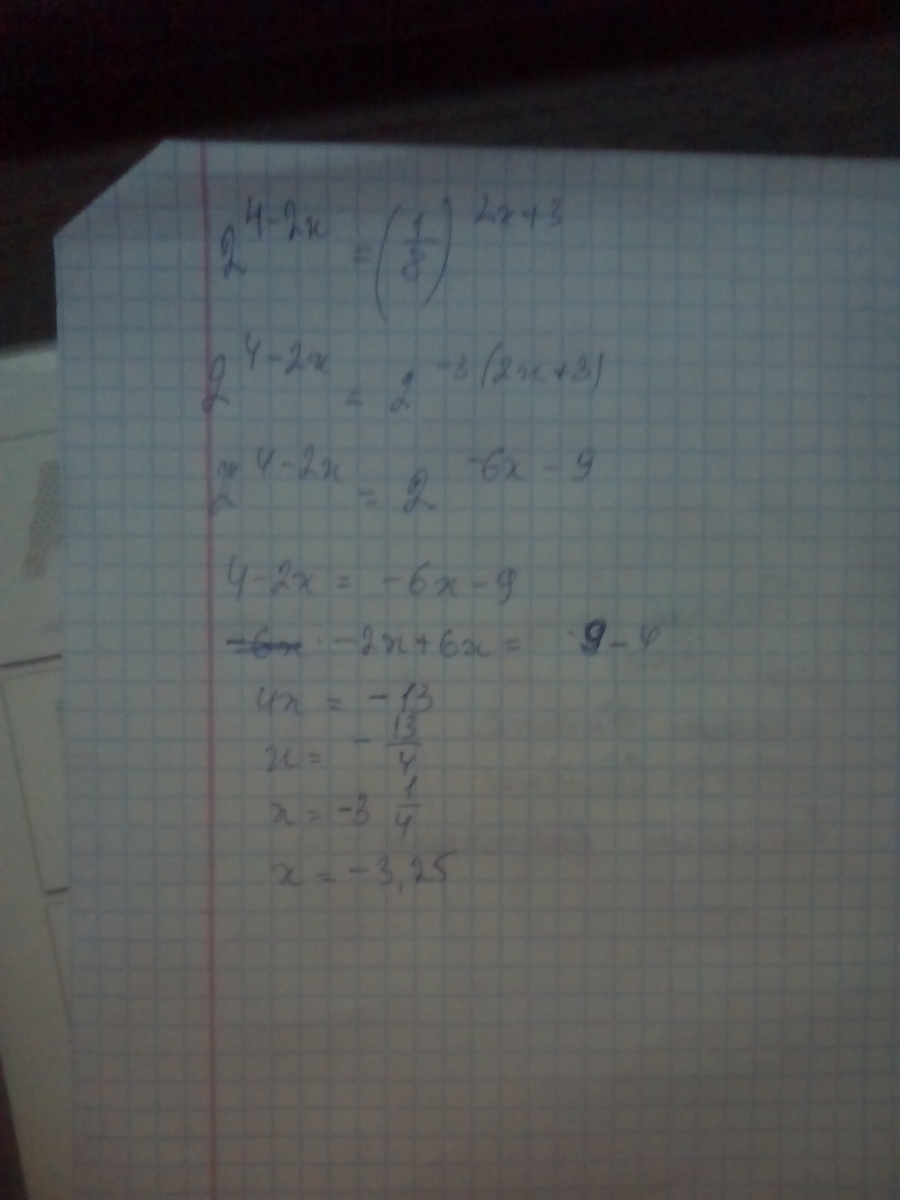 2^{4-2x} = (1/8)^{2x+3}
2^{4-2x} = 2^{-3(2x+3)}
2^{4-2x} = 2^{-6x-9}
4-2x = -6x-9
-2x+6x = -9-4
4x = -13
x = -13/4
x = -3 1/4
x = -3,25